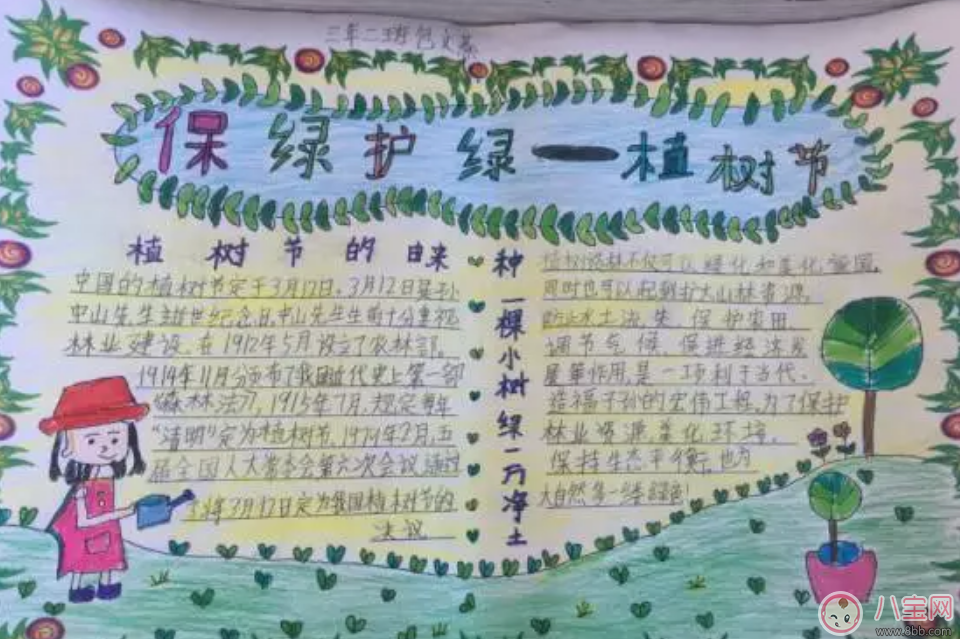 三年二班包文
保绿护绿一植树节
植树节的由来
中国的植树节定于3月12日。3月12日是孙
中山先生逝世纪念日,中山先生生前十分重视
林业建设。在1912年5月设立了农林部。
1914年11月分颁布了我国近代史上第一部
《森林法》,1915年7月,规定每年
"清明"定为植树节。1979年2月,五
届全国人大常委会第六次会议通过
将3月12日定为我国植树节的
决议
种一棵小树绿一方净土
植树造林不仅可以绿化和美化家园,
同时也可以起到扩大山林资源、
防止水土流失、保护农田、
调节气候、促进经济发
展等作用,是一项利于当代、
造福子孙的宏伟工程,为了保护
林业资源,美化环境,
保持生态平衡,也为
大自然多一些绿色!
八宝网
www.8bb.com